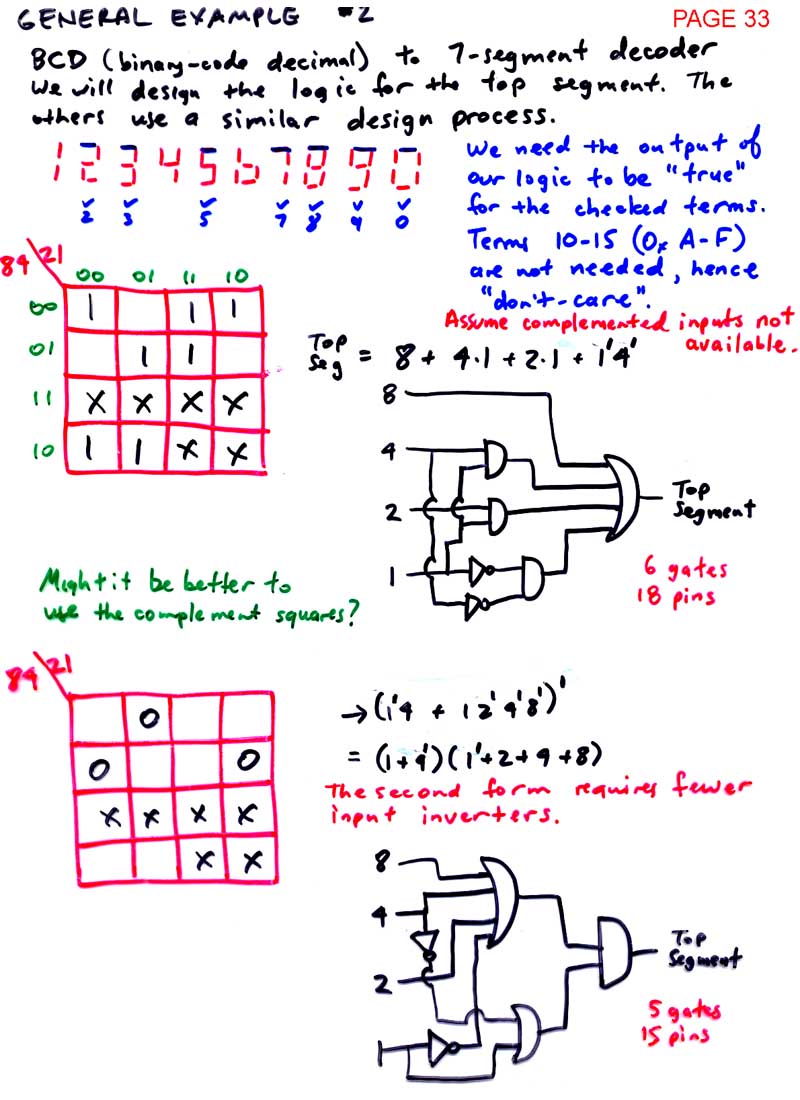 GENERAL EXAMPLE #2
PAGE 33
BCD (binary-code decimal) to 7-segment decoder
We will design the logic for the top segment. The
others use a similar design process.
1 2 3 4 5 6 7 8 9 0
2 3 5 7 8 9 0
We need the output of
our logic to be "true"
for the checked terms.
Terms 10-15 (0x A-F)
are not needed, hence
"don't-care".
Assume complemented inputs not
available.
84 21
00 01 11 10
00 1 1 1
01 1 1
11 X X X X
10 1 1 X X
Top
Seg = 8 + 4·1 + 2·1 + 1'4'
8
4
2
1
Top
Segment
6 gates
18 pins
Might it be better to
use the complement squares?
84 21
0
0 0
X X X X
X X
→(1'4 + 12'4'8')'
= (1+4')(1'+2+4+8)
The second form requires fewer
input inverters.
8
4
2
1
Top
Segment
5 gates
15 pins